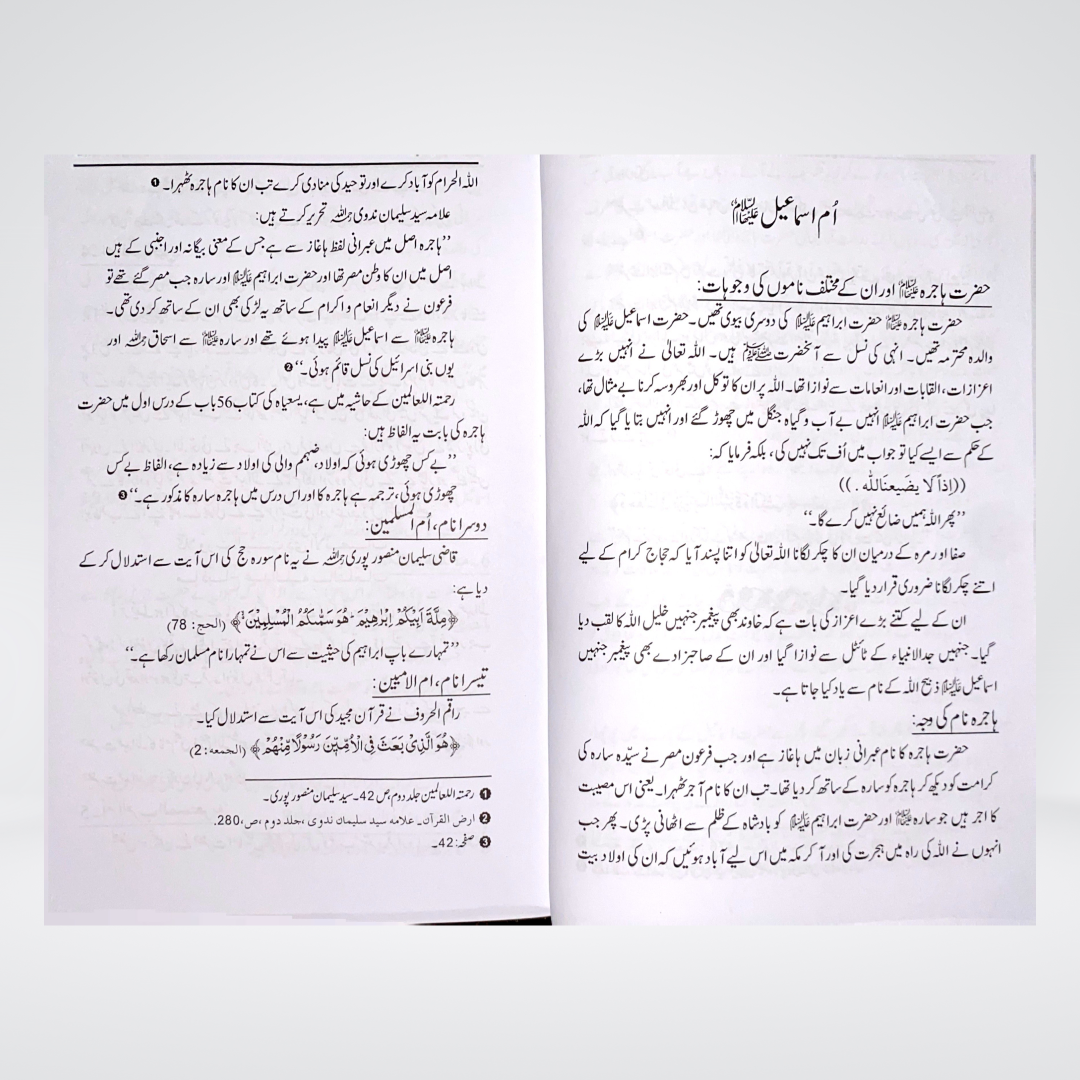 اُم اسماعیل علیہا السلام
حضرت ہاجرہ علیہا السلام اور ان کے مختلف ناموں کی وجوہات:
حضرت ہاجرہ علیہا السلام حضرت ابراہیم علیہ السلام کی دوسری بیوی تھیں۔ حضرت اسماعیل علیہ السلام کی
والدہ محترمہ تھیں۔ انہی کی نسل سے آنحضرت ﷺ ہیں۔ اللہ تعالیٰ نے انہیں بڑے
اعزازات، القابات اور انعامات سے نوازا تھا۔ اللہ پر ان کا توکل اور بھروسہ کرنا بے مثال تھا،
جب حضرت ابراہیم علیہ السلام انہیں بے آب و گیاہ جنگل میں چھوڑ گئے اور انہیں بتا یا گیا کہ اللہ
کے حکم سے ایسے کیا تو جواب میں اُف تک نہیں کی، بلکہ فرمایا کہ:
((اِذاً لا یضَیعنَاللّٰہ .))
”پھر اللہ ہمیں ضائع نہیں کرے گا۔“
صفا اور مرہ کے درمیان ان کا چکر لگانا اللہ تعالیٰ کو اتنا پسند آیا کہ حجاج کرام کے لیے
اتنے چکر لگانا ضروری قرار دیا گیا۔
ان کے لیے کتنے بڑے اعزاز کی بات ہے کہ خاوند بھی پیغمبر جنہیں خلیل اللہ کا لقب دیا
گیا۔ جنہیں جد الانبیاء کے ٹائٹل سے نوازا گیا اور ان کے صاحبزادے بھی پیغمبر جنہیں
اسماعیل علیہ السلام ذبیح اللہ کے نام سے یاد کیا جاتا ہے۔
ہاجرہ نام کی وجہ:
حضرت ہاجرہ کا نام عبرانی زبان میں ہاغاز ہے اور جب فرعون مصر نے سیّدہ سارہ کی
کرامت کو دیکھ کر ہاجرہ کو سارہ کے ساتھ کر دیا تھا۔ تب ان کا نام آجر ٹھہرا۔ یعنی اس مصیبت
کا اجر ہیں جو سارہ علیہا السلام اور حضرت ابراہیم علیہ السلام کو بادشاہ کے ظلم سے اٹھانی پڑی۔ پھر جب
انہوں نے اللہ کی راہ میں ہجرت کی اور آ کر مکہ میں اس لیے آباد ہوئیں کہ ان کی اولاد بیت
اللہ الحرام کو آباد کرے اور توحید کی منادی کرے تب ان کا نام ہاجرہ ٹھہرا۔ ❶
علامہ سید سلیمان ندوی رحمہ اللہ تحریر کرتے ہیں:
”ہاجرہ اصل میں عبرانی لفظ ہاغاز سے ہے جس کے معنی بیگانہ اور اجنبی کے ہیں
اصل میں ان کا وطن مصر تھا اور حضرت ابراہیم علیہ السلام اور سارہ جب مصر گئے تھے تو
فرعون نے دیگر انعام و اکرام کے ساتھ یہ لڑکی بھی ان کے ساتھ کر دی تھی۔
ہاجرہ علیہا السلام سے اسماعیل علیہ السلام پیدا ہوئے تھے اور سارہ علیہا السلام سے اسحاق رحمہ اللہ اور
یوں بنی اسرائیل کی نسل قائم ہوئی۔“ ❷
رحمتہ اللعالمین کے حاشیہ میں ہے، یسعیاہ کی کتاب 56 باب کے درس اول میں حضرت
ہاجرہ کی بابت یہ الفاظ ہیں:
”بے کس چھوڑی ہوئی کہ اولاد، ضہم والی کی اولاد سے زیادہ ہے، الفاظ بے کس
چھوڑی ہوئی، ترجمہ ہے ہاجرہ کا اور اس درس میں ہاجرہ سارہ کا مذکور ہے۔“ ❸
دوسرا نام، اُم المسلمین:
قاضی سلیمان منصور پوری رحمہ اللہ نے یہ نام سورہ حج کی اس آیت سے استدلال کر کے
دیا ہے:
﴿مِلَّةَ اَبِیْكُمْ اِبْرٰهِیْمَ ؕ هُوَ سَمّٰىكُمُ الْمُسْلِمِیْنَ﴾ (الحج: 78)
”تمہارے باپ ابراہیم کی حیثیت سے اس نے تمہارا نام مسلمان رکھا ہے۔“
تیسرا نام، ام الامیین:
راقم الحروف نے قرآن مجید کی اس آیت سے استدلال کیا۔
﴿هُوَ الَّذِیْ بَعَثَ فِی الْاُمِّیّٖنَ رَسُوْلًا مِّنْهُمْ﴾ (الجمعه: 2)
❶ رحمتہ اللعالمین جلد دوم، ص 42۔ سید سلیمان منصور پوری۔
❷ ارض القرآن۔ علامہ سید سلیمان ندوی، جلد دوم، ص، 280.
❸ صفحہ: 42۔